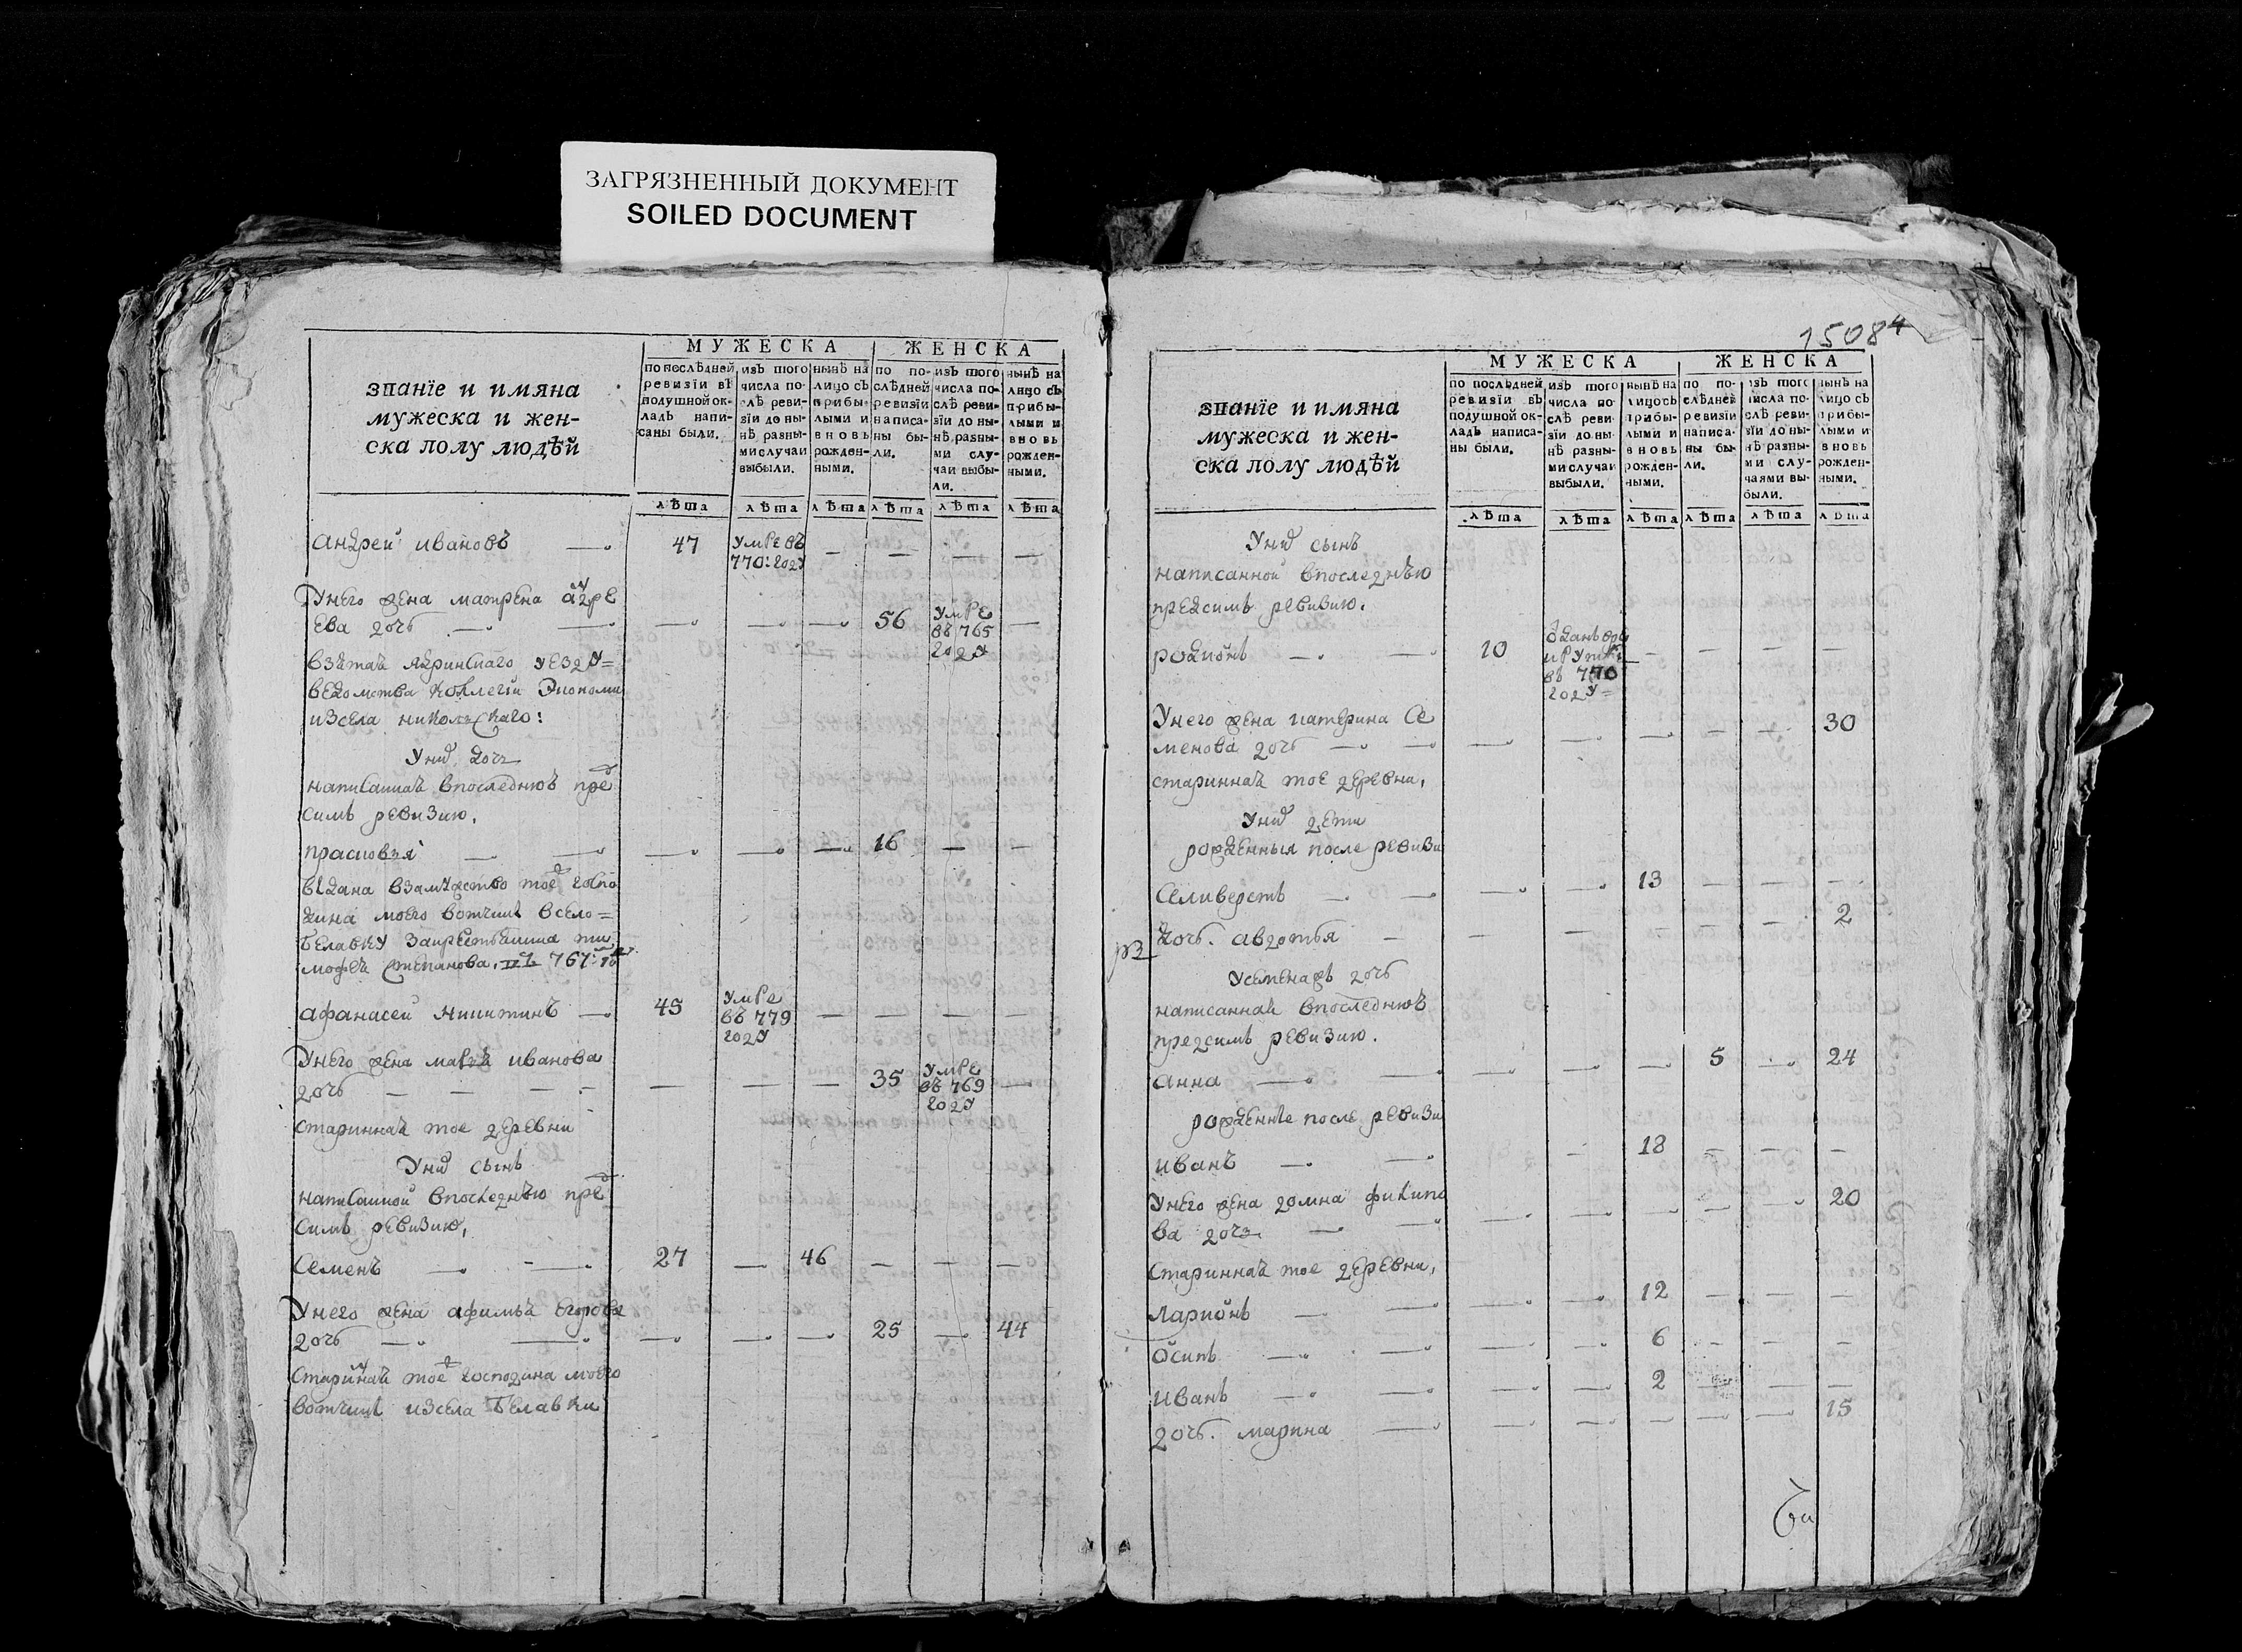 ЗАГРЯЗНЕННЫЙ ДОКУМЕНТ
SOILED DOCUMENT
званїе и имяна
мужеска и жен-
ска полу людѣй
МУЖЕСКА
по послѣдней
ревизїи въ
подушной ок-
ладъ напи-
саны были.
лѣта
изъ того
числа по-
слѣ реви-
зїи до ны-
нѣ разны-
ми случаи
выбыли.
лѣта
нынѣ на
лицо съ
прибы-
лыми и
вновь
рожден-
ными.
лѣта
ЖЕНСКА
по по-
слѣдней
ревизїи
написа-
ны бы-
ли.
лѣта
изъ того
числа по-
слѣ реви-
зїи до ны-
нѣ разны-
ми слу-
чаи выбы-
ли.
лѣта
нынѣ на
лицо съ
прибы-
лыми и
вновь
рожден-
ными.
лѣта
андрей ивановъ — 47 умре въ — — — —
770: году
унего жена матрена андре
ева дочь — — — — — 56 умре —
въ 765
году
взятая ядринскаго уезду=
ведомства коллегіи экономи
изсела никольскаго:
уних дочь
написанная впоследнюю пред
симъ ревизию.
прасковья — — — — — 16 — —
выдана взамужство тоеж госпо
дина моего вотчины всело=
белавку закрестьянина ти
мофея степанова. въ 767: году
афанасей никитинъ — 45 умре — — — —
въ 779
году
унего жена марья иванова
дочь — — — — — — — 35 умре —
въ 769
году
старинная тое деревни
уних сынъ
написанной впоследнюю пред
симъ ревизию,
семенъ — — 27 — 46 — — —
унего жена афимья егорова
дочь — — — — — 25 — 44
старинная тоеж господина моего
вотчины изсела белавки
15084
званїе и имяна
мужеска и жен-
ска полу людѣй
МУЖЕСКА
по послѣдней
ревизїи въ
подушной ок-
ладъ написа-
ны были.
лѣта
изъ того
числа по-
слѣ реви-
зїи до ны-
нѣ разны-
ми случаи
выбыли.
лѣта
нынѣ на
лицо съ
прибы-
лыми и
вновь
рожден-
ными.
лѣта
ЖЕНСКА
по по-
слѣдней
ревизїи
написа-
ны бы-
ли.
лѣта
изъ того
числа по-
слѣ реви-
зїи до ны-
нѣ разны-
ми слу-
чаями вы-
были.
лѣта
нынѣ на
лицо съ
прибы-
лыми и
вновь
рожден-
ными.
лѣта
уних сынъ
написанной впоследнѣю
предсимъ ревизию.
родионъ — — 10 отданъ — — — —
въ 770
году=
унего жена катерина се
менова дочь — — — — — — — 30
старинная тое деревни,
уних дети
рожденныя после ревизи
селиверстъ — — — — 13 — — —
дочь. авдотья — — — — — — 2
усеменажъ дочь
написанная впоследнюю
предсимъ ревизию.
анна — — — — — 5 — 24
рожденные после ревизи
иванъ — — — 18 — — —
унего жена домна филипо
ва дочь — — — — — — — 20
старинная тое деревни,
ларионъ — — — — 12 — — —
осипъ — — — — 6 — — —
иванъ — — — — 2 — — —
дочь. марина — — — — — — 15